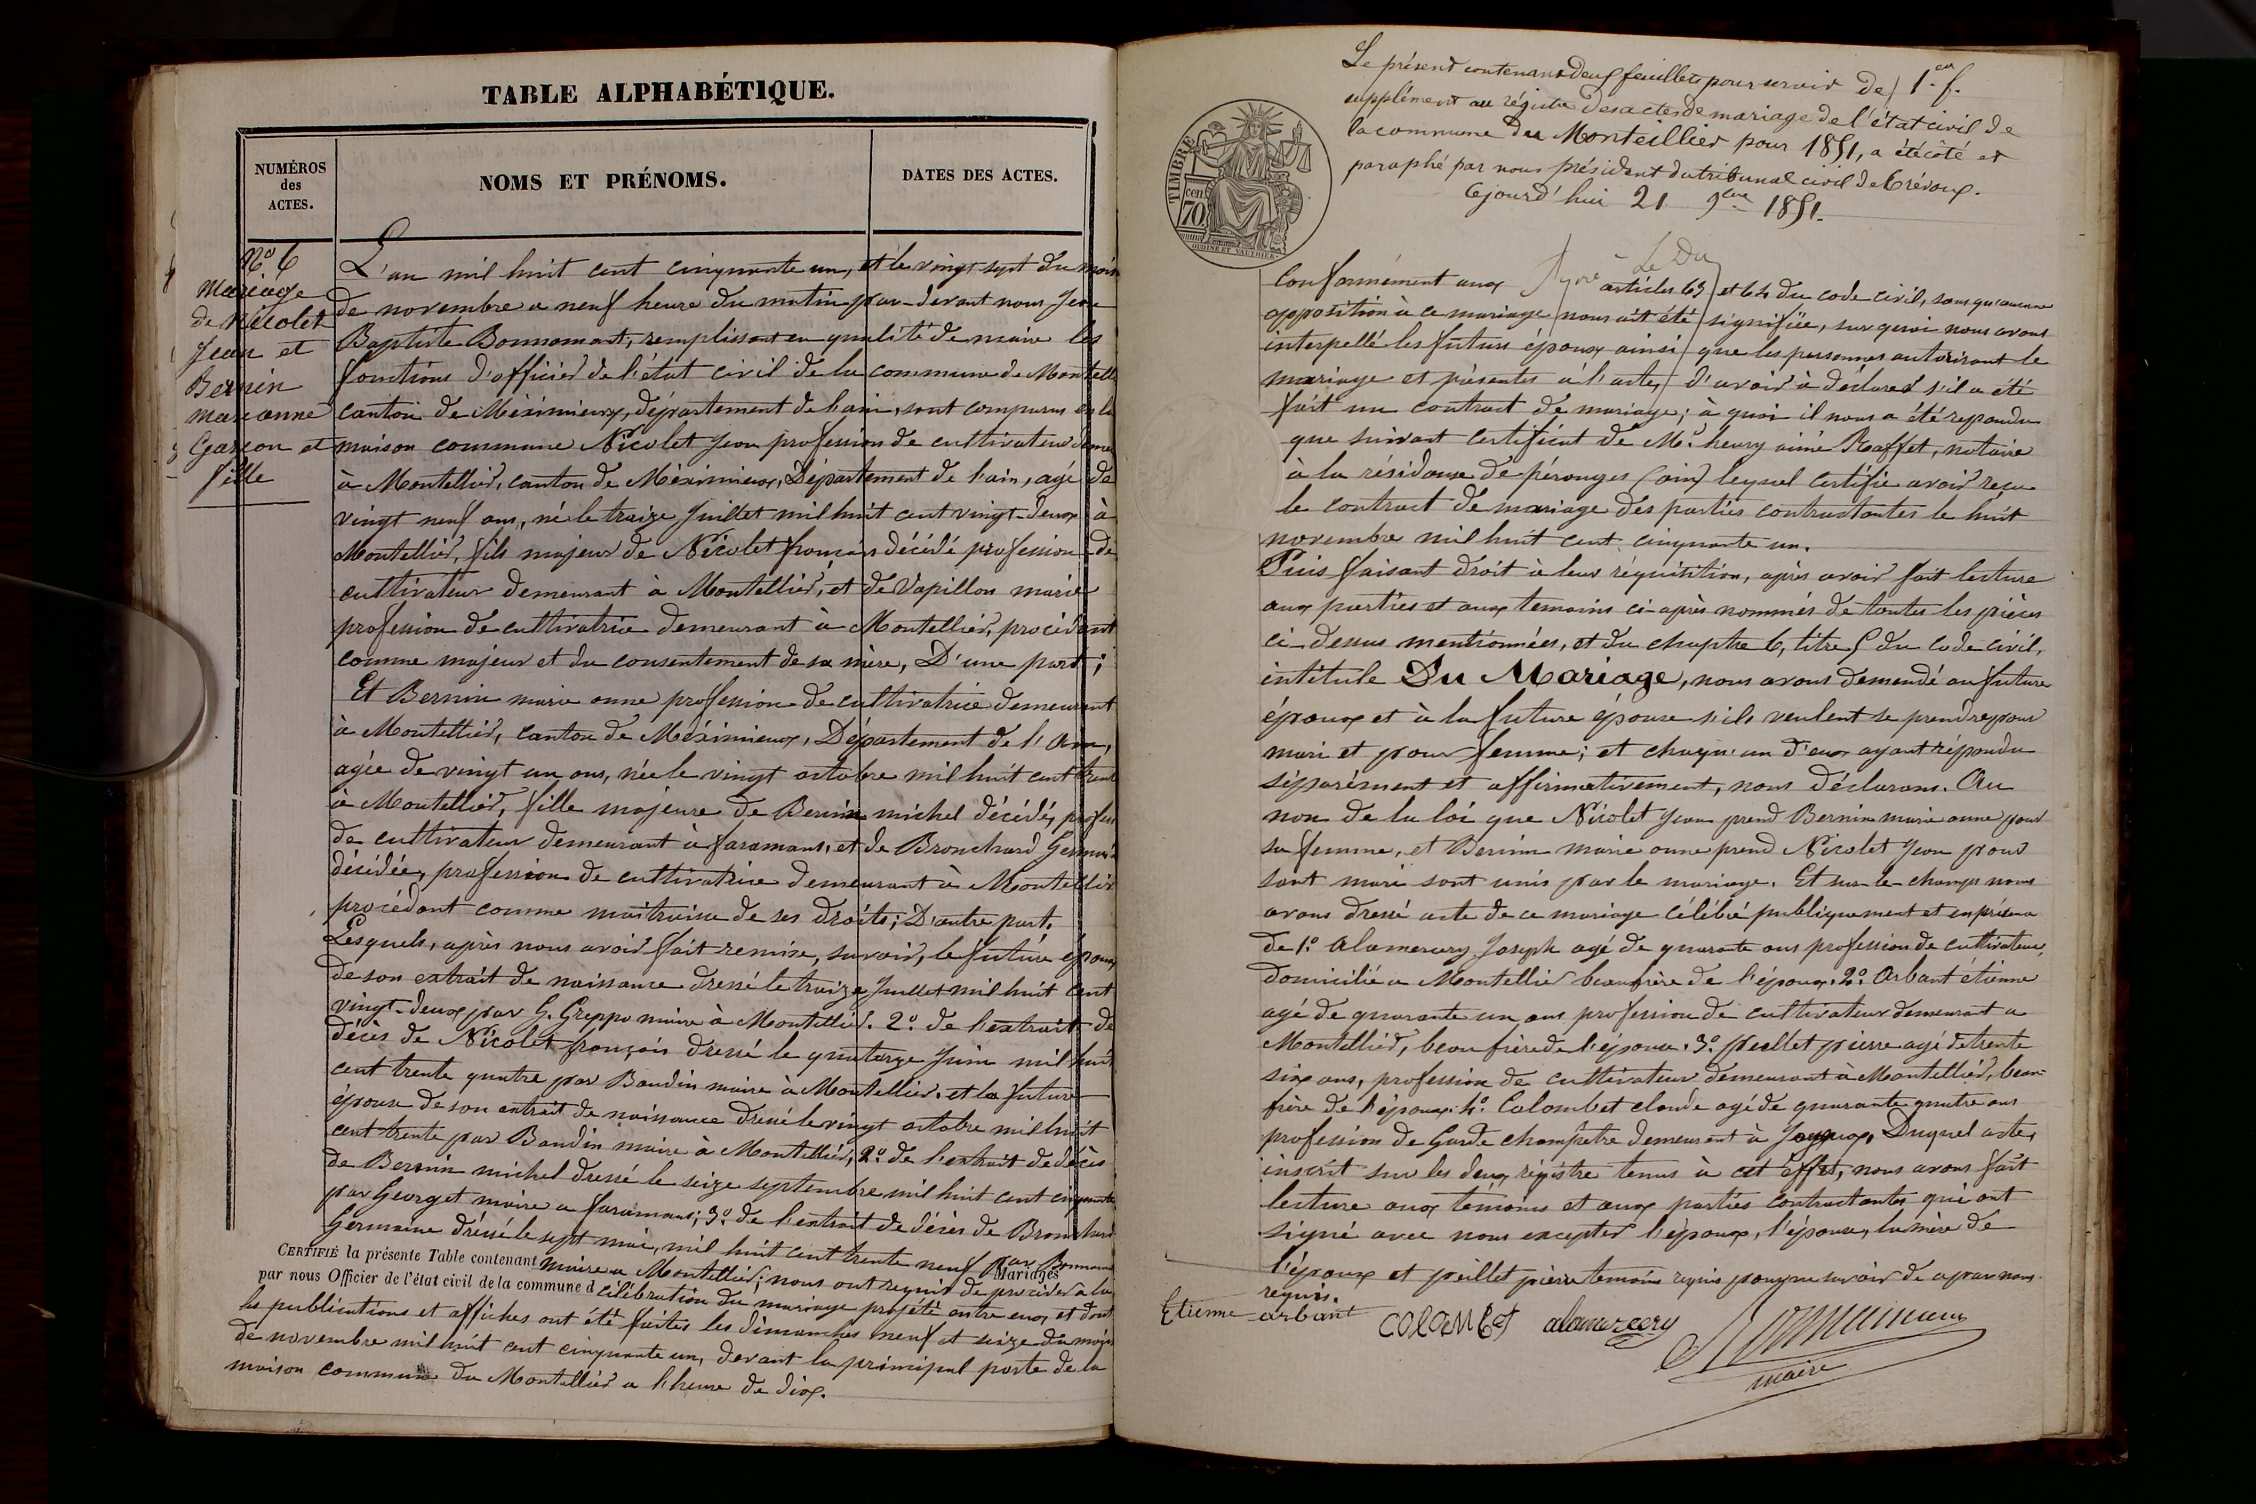 TABLE ALPHABÉTIQUE.
NUMÉROS
des
ACTES.
NOMS ET PRÉNOMS.
DATES DES ACTES.
N.º 6
Mariage
de Nicolet
Jean et
Bernin
marianne
Garcon et
fille
L'an mil huit cent cinquante un, et le vingt sept du mois
de novembre a neuf heure du matin par-devant nous Jean
Baptiste Bonnamant, remplissant en qualité de maire les
fonctions d'officier de l'état civil de la commune de Montelli
canton de Méximieux, département de l'ain, sont comparus en la
maison commune Nicolet Jean profession de cultivateur deme
à Montellier, canton de Méximieux, Département de l'ain, agé de
vingt neuf ans, né le traize Juillet mil huit cent vingt-deux à
Montellier, fils majeur de Nicolet françois décédé profession de
cultivateur demeurant à Montellier, et de Vapillon marie
profession de cultivatrice demeurant à Montellier, procédant
comme majeur et du consentement de sa mère, D'une part;
Et Bernin marie anne profession de cultivatrice demeurant
à Montellier, canton de Méximieux, Département de l'Ain,
agée de vingt un ans, née le vingt octobre mil huit cent trente
à Montellier, fille majeure de Bernin michel décédé, profess
de cultivateur demeurant à faramans, et de Bronchard Germain
décédée, profession de cultivatrice demeurant à Montellier
procédant comme maitraisse de ses droits; D'autre part.
Lesquels, après nous avoir fait remise, savoir, le future époux
de son extrait de naissance dressé le traize Juillet mil huit cent
vingt-deux par G. Greppo maire à Montellier. 2º de l'extrait de
décès de Nicolet françois dressé le quatorze Juin mil huit
cent trente quatre par Baudin maire à Montellier. et la future
épouse de son extrait de naissance dressé le vingt octobre mil huit
cent trente par Baudin maire à Montellier, 2º de l'extrait de décès
de Bernin michel dressé le seize septembre mil huit cent cinquante
par Georget maire a faramans; 3º de l'extrait de décès de Bronchard
Germaine dréssé le sept mai, mil huit cent trente neuf par Bonnamant
CERTIFIÉ la présente Table contenant maire a Montellier; nous ont requis de procéder a la
Mariages
par nous Officier de l'état civil de la commune d célébration du mariage projété entre eux et dont
les publications et affiches ont été faites les dimanches neuf et seize du mois
de novembre mil huit cent cinquante un, devant la principal porte de la
maison commune de Montellier a l'heure de dix.
Le présent contenant deux feuillets pour servir de 1er f.
supplément au régistre des actes de mariage de l'état civil de
la commune du Monteillier pour 1851, a été côté et
paraphé par nous président du tribunal civil de Trévoux.
Cejourd'hui 21 9bre 1851.
TIMBRE
70 cen
OUDINE ET VAUTHIER
Conformément aux articles 63 et 64 du code civil, sans qu'aucune
opposition à ce mariage nous ait été signifiée, sur quoi nous avons
interpellé les futurs époux ainsi que les personnes autorisant le
mariage et présentes à l'acte, d'avoir à déclarer s'il a été
fait un contract de mariage; à quoi il nous a été repondu
que suivant certificat de M.e henry aimé Raffet, notaire
à la résidence de pérouges (ain) lequel certifie avoir reçu
le contract de mariage des parties contractantes le huit
novembre mil huit cent cinquante un.
Puis faisant droit à leur réquisition, après avoir fait lecture
aux parties et aux temoins ci-après nommés de toutes les pièces
ci-dessus mentionnées, et du chapitre 6, titre 5 du code civil,
intitule Du Mariage, nous avons demandé au future
époux et à la future épouse s'ils veulent se prendre pour
mari et pour femme; et chaqu'un d'eux ayant répondu
séparément et affirmativement, nous déclarons. Au
nom de la loi que Nicolet Jean prend Bernin marie anne pour
sa femme, et Bernin marie anne prend Nicolet Jean pour
sont mari sont unis par le mariage. Et sur le champs nous
avons dressé acte de ce mariage célébré publiquement et en présence
de 1º. Alamercery Joseph agé de quarante ans profession de cultivateur,
domicilié a Montellier beaufrère de l'époux. 2º. Arbant étienne
agé de quarante un ans profession de cultivateur demeurant a
Montellier, beau frère de l'épouse. 3º. peillet pierre agé de trente
six ans, profession de cultivateur demeurant à Montellier, beau-
frère de l'époux. 4º. Colombet claude agé de quarante quatre ans
profession de Garde champêtre demeurant à Joyeux, Duquel acte,
inscrit sur les deux régistre tenus à cet effet, nous avons fait
lecture aux témoins et aux parties contractantes qui ont
signé avec nous excepter l'époux, l'épouse, la mère de
l'époux et peillet pierre temoins requis pour ne savoir de a par nous
requis.
Etienne arbant COLOMbet alamercery Bonnamant
maire